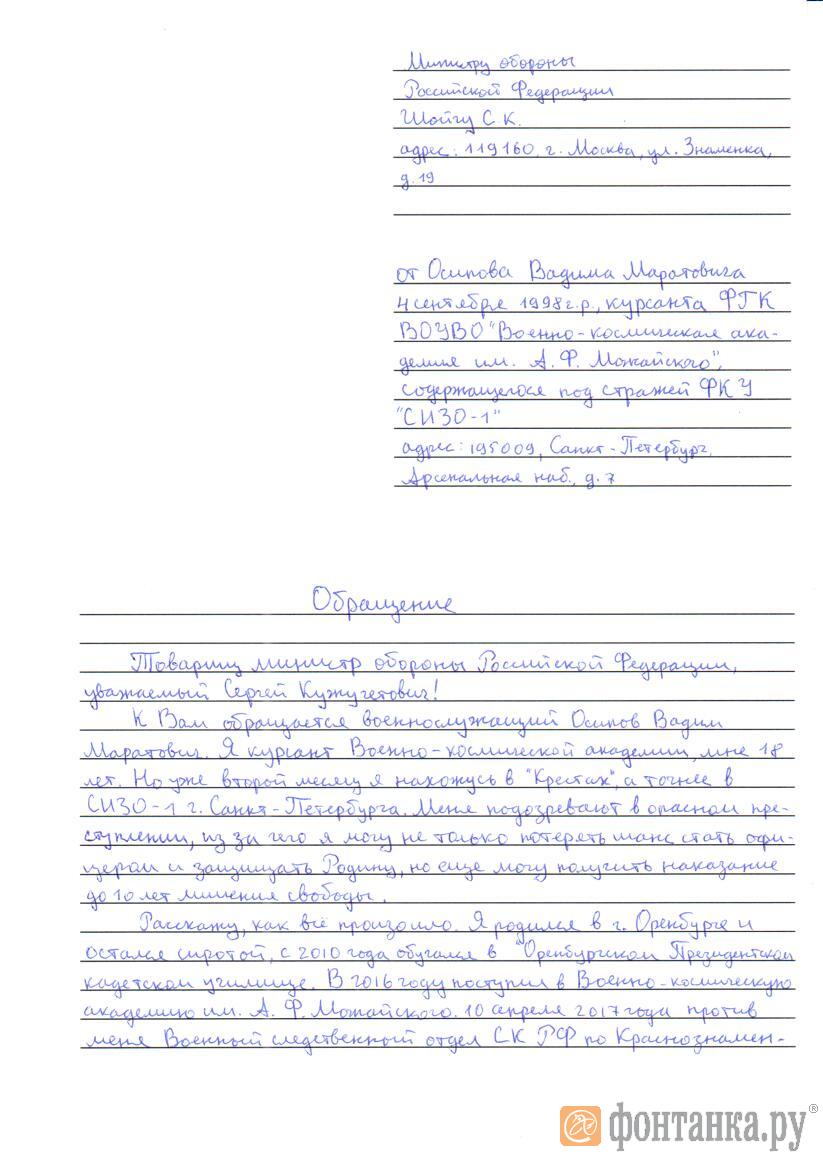 Министру обороны
Российской Федерации
Шойгу С.К.
адрес: 119160, г. Москва, ул. Знаменка,
д.19
от Осипова Вадима Маратовича
4 сентября 1998 г.р., курсанта ФГК
ВОУВО "Военно-космическая ака-
демия им. А.Ф. Можайского",
содержащегося под стражей ФКУ
"СИЗО-1"
адрес: 195009, Санкт-Петербург,
Арсенальная наб., д.7
Обращение
Товарищ министр обороны Российской Федерации,
уважаемый Сергей Кужугетович!
К Вам обращается военнослужащий Осипов Вадим
Маратович. Я курсант Военно-космической академии, мне 18
лет. Но уже второй месяц я нахожусь в "Крестах", а точнее в
СИЗО-1 г. Санкт-Петербурга. Меня подозревают в опасном пре-
ступлении, из за чего я могу не только потерять шанс стать офи-
цером и защищать Родину, но еще могу получить наказание
до 10 лет лишения свободы.
Расскажу, как всё произошло. Я родился в г. Оренбурге и
остался сиротой, с 2010 года обучался в "Оренбургском Президентском
кадетском училище. В 2016 году поступил в Военно-космическую
академию им. А.Ф. Можайского. 10 апреля 2017 года против
меня Военный следственный отдел СК РФ по Краснознамен-
фонтанка.ру®